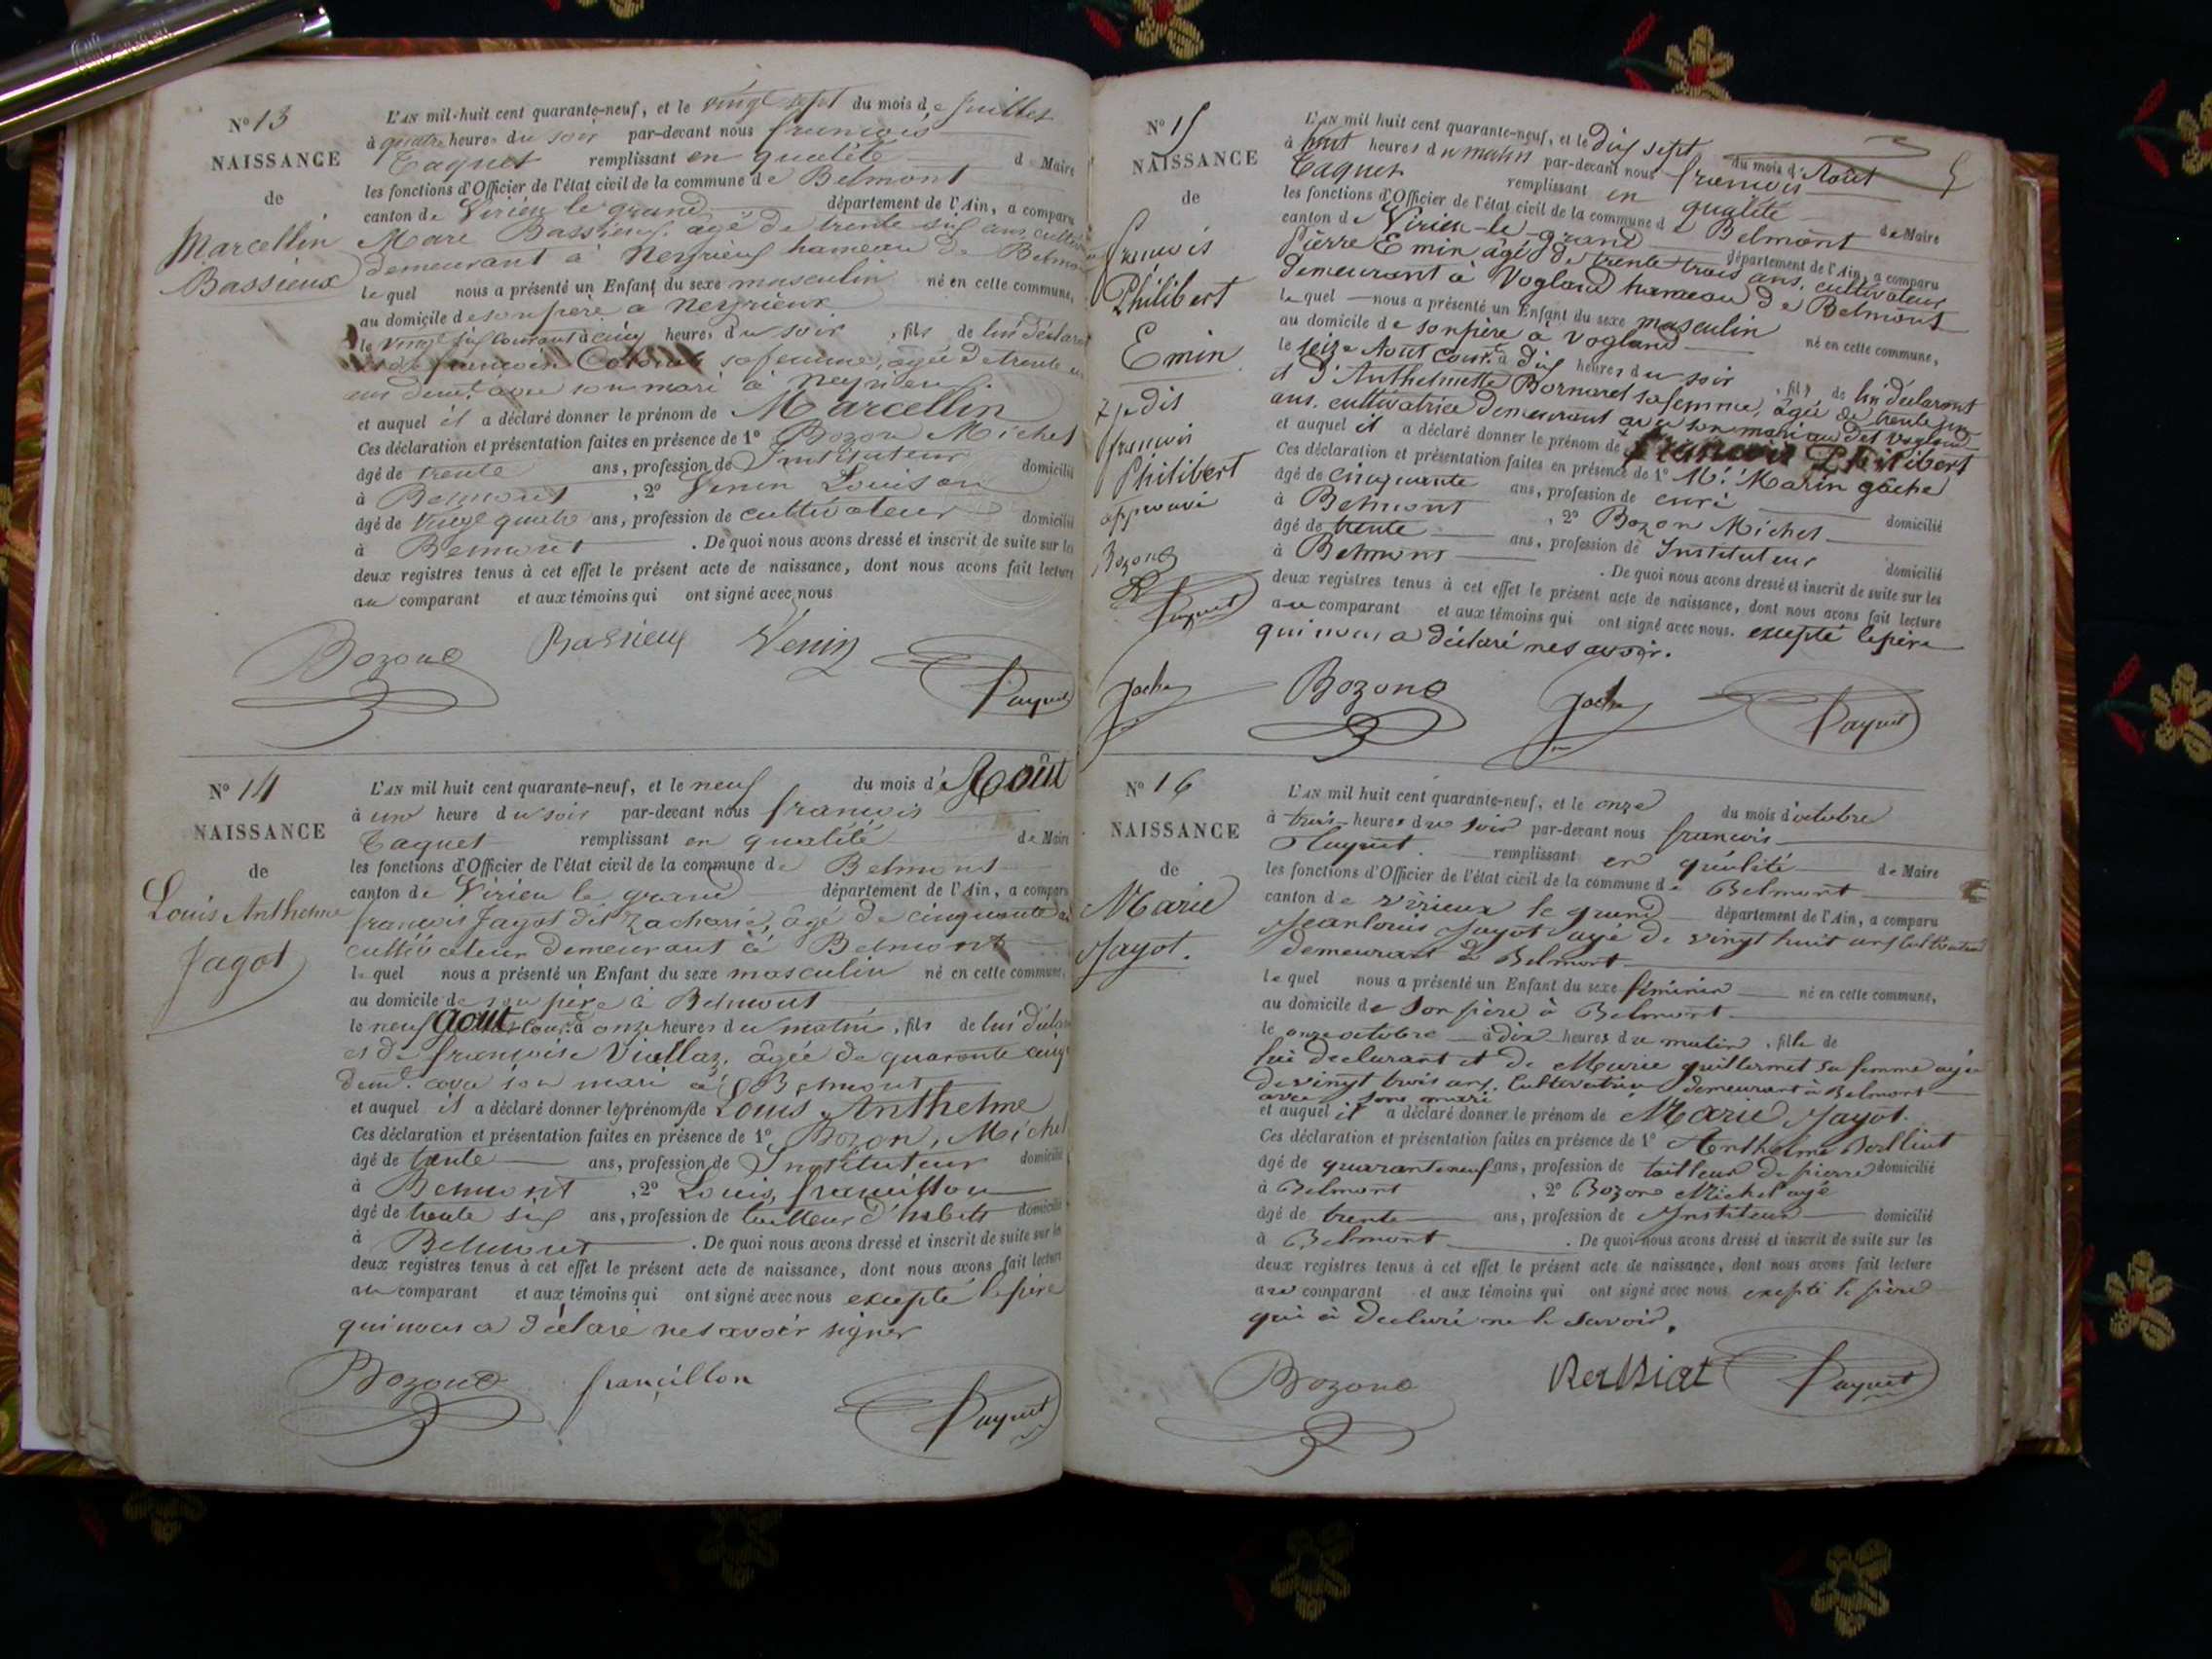 N° 13
NAISSANCE
de
Marcellin
Bassieux
L'AN mil-huit cent quarante-neuf, et le vingt sept du mois de Juillet
à quatre heures du soir par-devant nous françois
Taquet remplissant en qualité de Maire
les fonctions d'Officier de l'état civil de la commune de Belmont
canton de Virieu le grand département de l'Ain, a comparu
Marc Bassieux, agé de trente six ans, cultiv
demeurant à Neyrieux hameau de Belmo
lequel nous a présenté un Enfant du sexe masculin né en cette commune,
au domicile de son père a Neyrieux
le vingt six courant à cinq heures du soir, fils de lui déclara
françoise sa femme, âgée de trente
ans demt. avec son mari à Neyrieux
et auquel il a déclaré donner le prénom de Marcellin
Ces déclaration et présentation faites en présence de 1° Bozon Michel
âgé de trente ans, profession de Instituteur domicilié
à Belmont, 2° Venin Louison
âgé de vingt quatre ans, profession de cultivateur domicilié
à Belmont. De quoi nous avons dressé et inscrit de suite sur les
deux registres tenus à cet effet le présent acte de naissance, dont nous avons fait lecture
au comparant et aux témoins qui ont signé avec nous
Bozone Bassieux Venin
Paquet
N° 14
NAISSANCE
de
Louis Anthelme
Jagot
L'AN mil huit cent quarante-neuf, et le neuf du mois d'Août
à une heure du soir par-devant nous françois
Taquet remplissant en qualité de Maire
les fonctions d'Officier de l'état civil de la commune de Belmont
canton de Virieu le grand département de l'Ain, a comparu
françois Jagot dit Zacharie, âgé de cinquante a
cultivateur demeurant à Belmont
lequel nous a présenté un Enfant du sexe masculin né en cette commune,
au domicile de son père à Belmont
le neuf Août cour.t à onze heures du matin, fils de lui décla
et de françoise Viallaz, âgée de quarante cinq
demt. avec son mari à Belmont
et auquel il a déclaré donner les prénoms de Louis Anthelme
Ces déclaration et présentation faites en présence de 1° Bozon, Michel
âgé de trente ans, profession de Instituteur domicilié
à Belmont, 2° Louis, francillon
âgé de trente six ans, profession de tailleur d'habits domicilié
à Belmont. De quoi nous avons dressé et inscrit de suite sur les
deux registres tenus à cet effet le présent acte de naissance, dont nous avons fait lecture
au comparant et aux témoins qui ont signé avec nous excepté le père
qui nous a déclaré ne savoir signer
Bozone françillon
Paquet
N° 15
NAISSANCE
de
françois
Philibert
Emin
françois
Philibert
approuvé
Bozone
Paquet
L'AN mil huit cent quarante-neuf, et le dix sept du mois d'Août
à huit heures du matin par-devant nous françois
Taquet remplissant en qualité de Maire
les fonctions d'Officier de l'état civil de la commune de Belmont
canton de Virieu-le-grand département de l'Ain, a comparu
Pierre Emin âgé de trente-trois ans, cultivateur
demeurant à Vogland hameau de Belmont
lequel nous a présenté un Enfant du sexe masculin né en cette commune,
au domicile de son père à Vogland
le seize Août cour.t à dix heures du soir, fils de lui déclarant
et d'Anthelmette Bornarel sa femme, âgée de trente un
ans, cultivatrice demeurant avec son mari au dit vogland
et auquel il a déclaré donner le prénom de françois Philibert
Ces déclaration et présentation faites en présence de 1° Mr. Marin gache
âgé de cinquante ans, profession de curé domicilié
à Belmont, 2° Bozon Michel
âgé de trente ans, profession de Instituteur domicilié
à Belmont. De quoi nous avons dressé et inscrit de suite sur les
deux registres tenus à cet effet le présent acte de naissance, dont nous avons fait lecture
au comparant et aux témoins qui ont signé avec nous. excepté le père
qui nous a déclaré ne savoir.
gache Bozone gache Paquet
N° 16
NAISSANCE
de
Marie
Jagot.
L'AN mil huit cent quarante-neuf, et le onze du mois d'octobre
à trois heures du soir par-devant nous françois
Paquet remplissant en qualité de Maire
les fonctions d'Officier de l'état civil de la commune de Belmont
canton de virieux le grand département de l'Ain, a comparu
Jean louis Jagot agé de vingt huit ans cultivateur
demeurant à Belmont
lequel nous a présenté un Enfant du sexe féminin né en cette commune,
au domicile de son père à Belmont
le onze octobre à dix heures du matin, fille de
lui declarant et de Marie guillermet sa femme agé
de vingt trois ans, Cultivatrice demeurant à Belmont
avec son mari
et auquel il a déclaré donner le prénom de Marie Jagot.
Ces déclaration et présentation faites en présence de 1° Anthelme
âgé de quarante neuf ans, profession de tailleur de pierre domicilié
à Belmont, 2° Bozon Michel agé
âgé de trente ans, profession de Instituteur domicilié
à Belmont. De quoi nous avons dressé et inscrit de suite sur les
deux registres tenus à cet effet le présent acte de naissance, dont nous avons fait lecture
au comparant et aux témoins qui ont signé avec nous excepté le père
qui à declaré ne le savoir.
Bozone Paquet